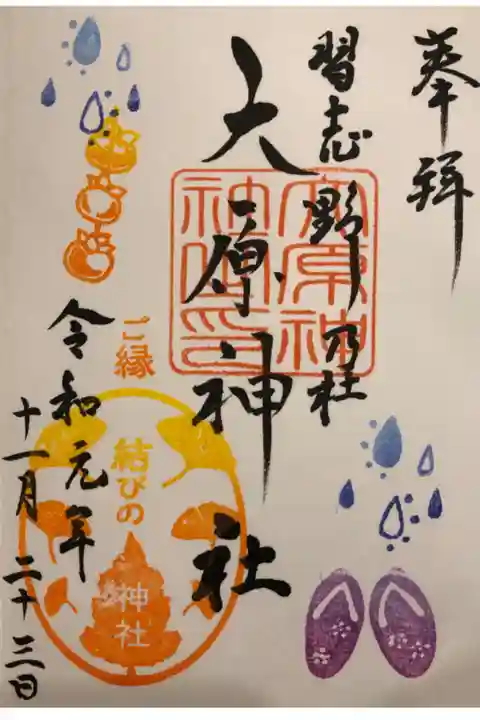 奉拝
習志野乃杜
大原神社
大原神社之印
ご縁
結びの
神社
令和元年
十一月二十三日